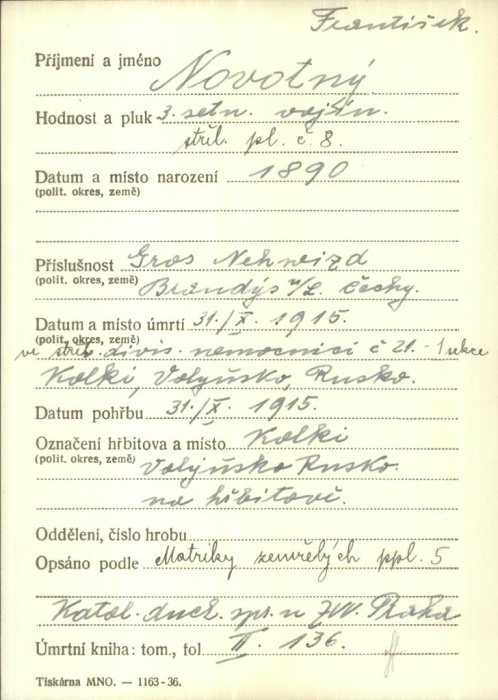 František.
Příjmení a jméno Novotný
Hodnost a pluk 3. setn. vojín.
střl. pl. č. 8.
Datum a místo narození 1890
(polit. okres, země)
Příslušnost Gros Nehwizd
(polit. okres, země) Brandýs n/L. Čechy.
Datum a místo úmrtí 31./X. 1915.
(polit. okres, země)
ve střel. divis. nemocnici č 21. - 1 sekce
Kolki, Volyňsko, Rusko.
Datum pohřbu 31./X. 1915.
Označení hřbitova a místo Kolki
(polit. okres, země) Volyňsko Rusko.
na hřbitově.
Oddělení, číslo hrobu
Opsáno podle Matriky zemřelých ppl. 5
Katol. duch. spr. u ZVV. Praha
Úmrtní kniha: tom., fol II. 136.
Tiskárna MNO. — 1163-36.